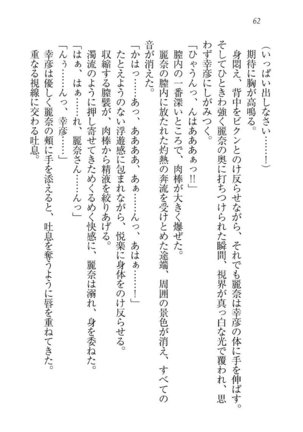 62
（いっぱい出しなさい……！）
期待に胸が高鳴る。
身悶え、背中をビクンとのけ反らせながら、それでも麗奈は幸彦の体に手を伸ばす。
そしてひときわ強く麗奈の奥に打ちつけられた瞬間、視界が真っ白な光で覆われ、思
わず幸彦にしがみつく。
「ひゃうんっ、んはああぁっ!!」
膣内の一番深いところで、肉棒が大きく爆ぜた。
麗奈の膣内に放たれた灼熱の奔流を受けとめた途端、周囲の景色が消え、すべての
音が消えた。
「かはっ……あっ、ああああ、あぁ……んっ、あはぁ……！」
たとえようのない浮遊感に包まれながら、悦楽に身体をのけ反らせる。
収縮する膣襞が、肉棒から精液を絞りあげる。
「はぁ、はぁ……れ、麗奈さん……んっ」
濁流のように押し寄せてきためくるめく快感に、麗奈は溺れ、身を委ねた。
「んぅ……んっ、幸彦……」
幸彦は優しく麗奈の頬に手を添えると、吐息を奪うように唇を重ねてきた。
重なる視線に交わる吐息。